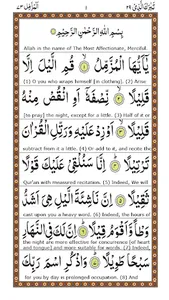 بِسْمِ اللهِ الرَّحْمٰنِ الرَّحِيْمِ
Allah in the name of The Most Affectionate, Merciful.
يٰۤاَيُّهَا الْمُزَّمِّلُ ۙ قُمِ الَّيْلَ اِلَّا
(1) O you who wraps himself [in clothing], (2) Arise
قَلِيْلًا ۙ نِّصْفَهٗۤ اَوِ انْقُصْ مِنْهُ
[to pray] the night, except for a little. (3) Half of it or
قَلِيْلًا ۙ اَوْ زِدْ عَلَيْهِ وَرَتِّلِ الْقُرْاٰنَ
subtract from it a little. (4) Or add to it, and recite the
تَرْتِيْلًا ؕ اِنَّا سَنُلْقِيْ عَلَيْكَ قَوْلًا
Qur'an with measured recitation. (5) Indeed, We will
ثَقِيْلًا اِنَّ نَاشِئَةَ الَّيْلِ هِيَ اَشَدُّ
cast upon you a heavy word. (6) Indeed, the hours of
وَطْاً وَّاَقْوَمُ قِيْلًا ؕ اِنَّ لَكَ فِي النَّهَارِ
the night are more effective for concurrence [of heart and tongue] and more suitable for words. (7) Indeed,
سَبْحًا طَوِيْلًا ؕ وَاذْكُرِ اسْمَ رَبِّكَ
for you by day is prolonged occupation. (8) And